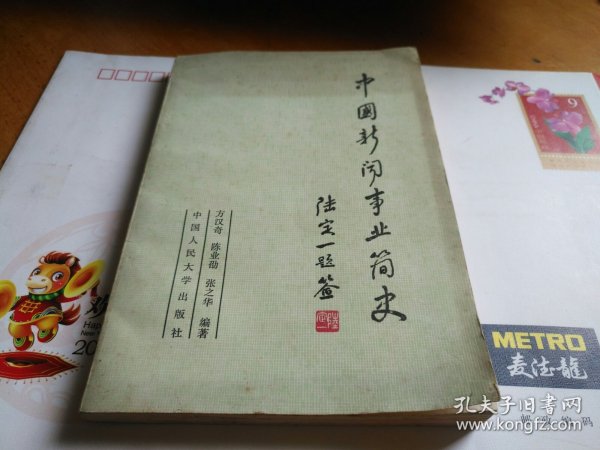 中國新闻事业简史
陆定一题签
方汉奇 陈业劭 张之华 编著
中国人民大学出版社
9
METRO
麦德龍
邮政编码
Happ
New
20
孔夫子旧书网
www.kongfz.com